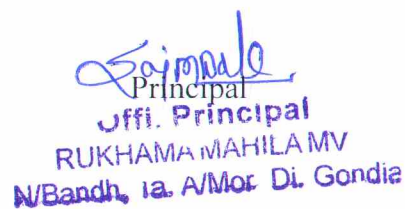 Principal
Offi. Principal
RUKHAMA MAHILA MV
N/Bandh, Ta. A/Mor. Di. Gondia